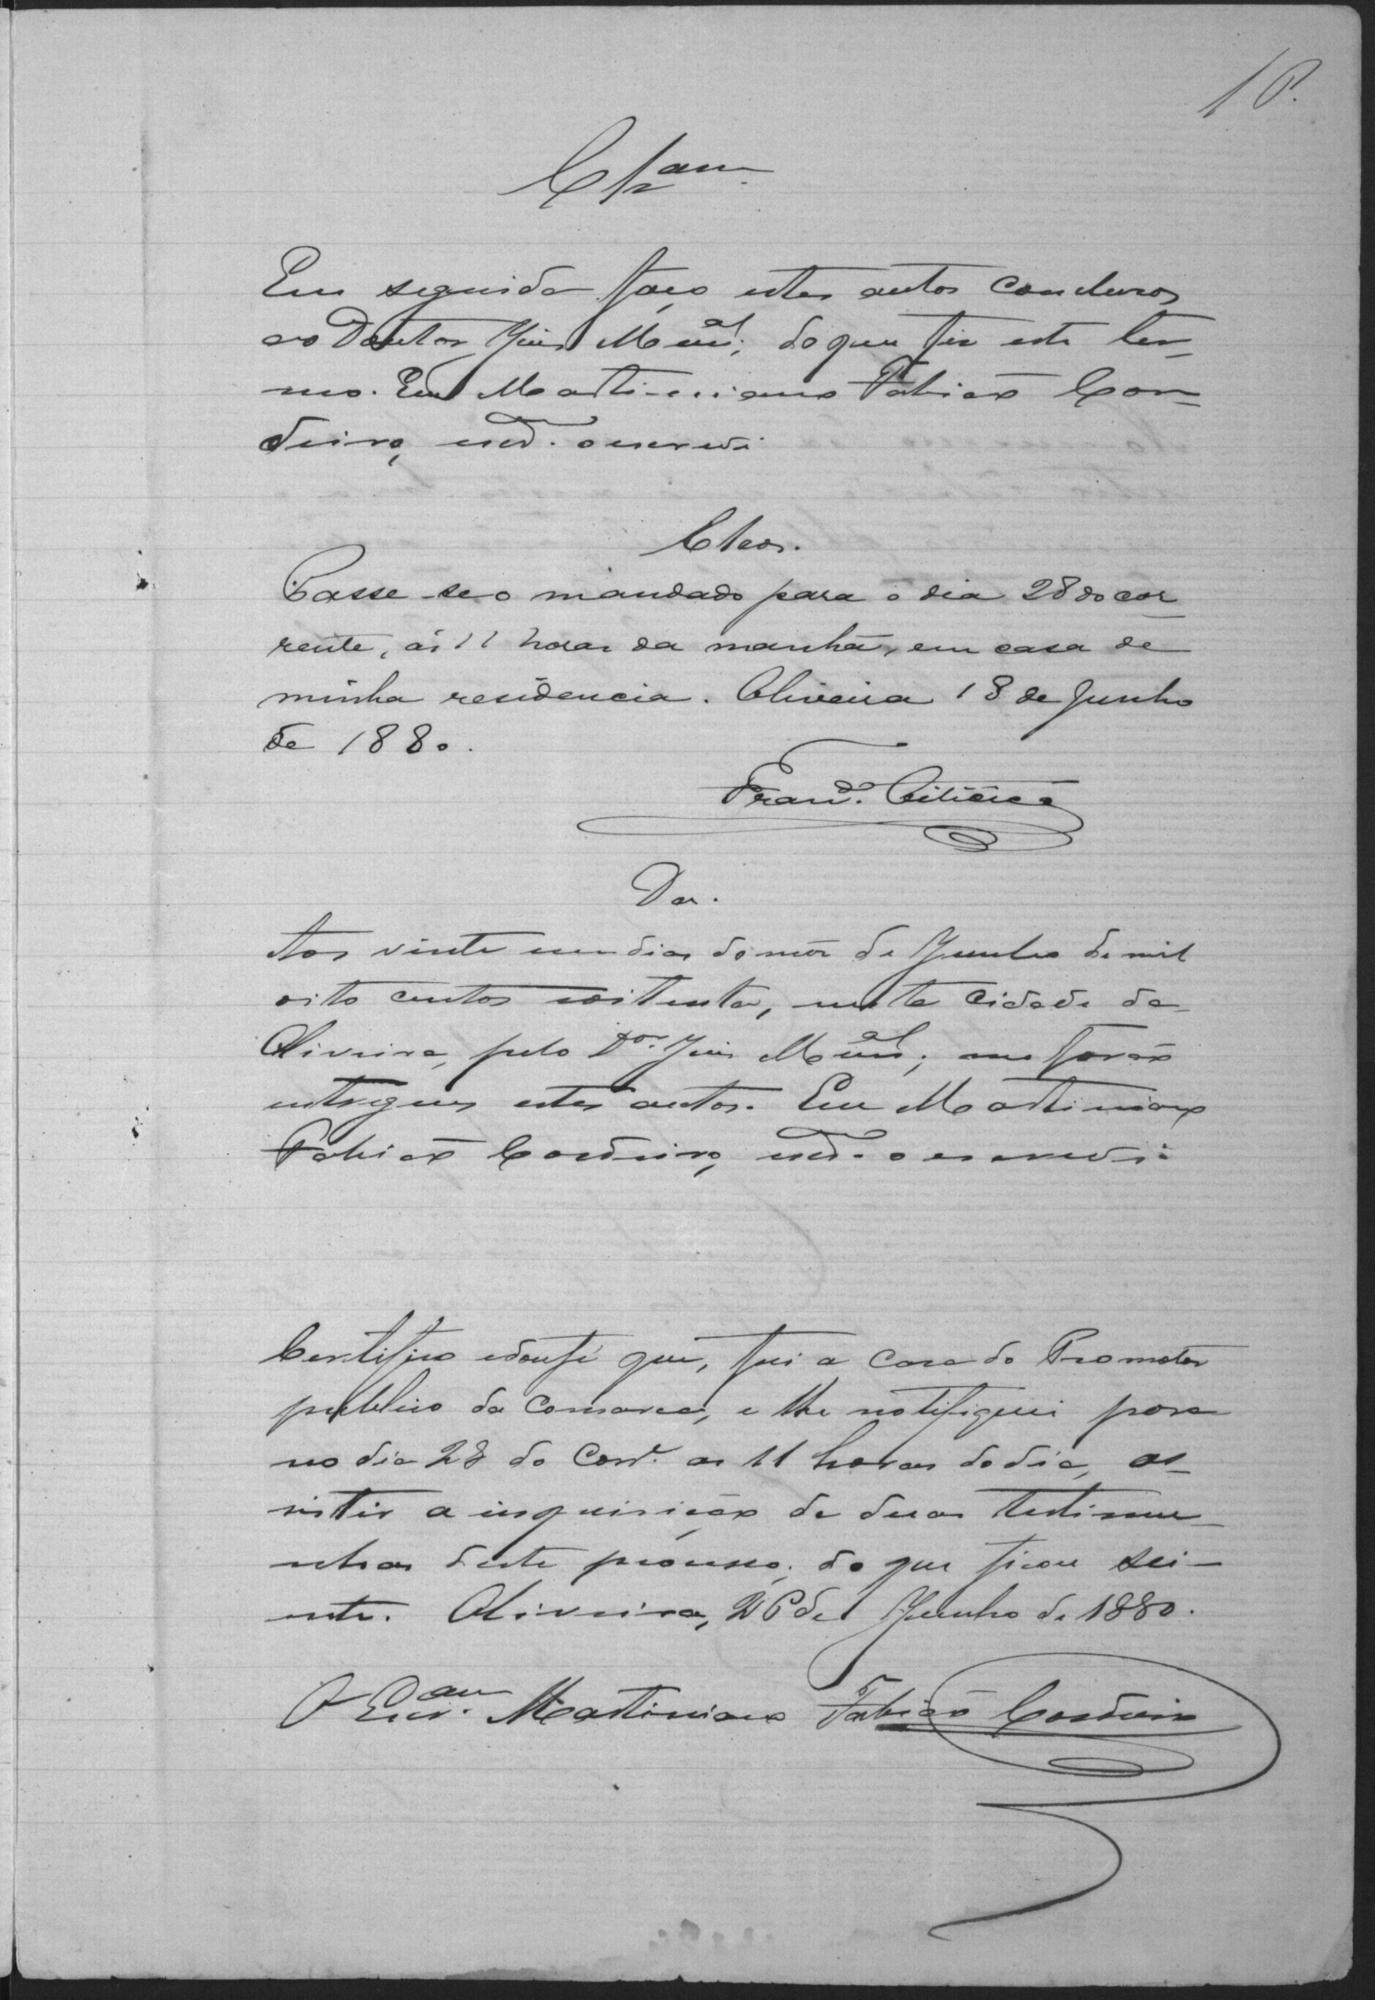 10.
Clzam.
Em seguida faço estes autos conclusos
ao Doutor Juiz Mun.al; do que fiz este ter-
mo. Eu Martiniano Fabião Cor-
deiro, escr.am o escrevi
Clsos.
Passe-se o mandado para o dia 28 do cor
rente, ás 11 horas da manhã, em casa de
minha residencia. Oliveira 18 de Junho
de 1880.
Da.
Aos vinte um dias do mez de Junho de mil
oito centos e oitenta, nesta cidade da
Oliveira, pelo Dor. Juiz Mun.al; me forão
entregues estes autos. Eu Martiniano
Fabião Cordeiro, escr.am o escrevi
Certifico e dou fé que, fui a casa do Promotor
publico da Comarca, e lhe notifiquei para
no dia 28 do Corr.e as 11 horas do dia, as-
sistir a inquirição de duas testimu-
nhas deste processo; do que ficou sci-
ente. Oliveira, 26 de Junho de 1880.
O Escr.am Martiniano Fabião Cordeiro